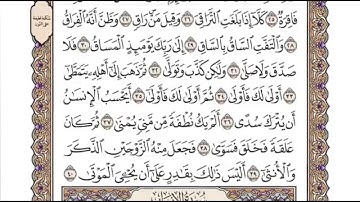 فَاقِرَةٌ ٢٥ كَلَّا إِذَا بَلَغَتِ التَّرَاقِيَ ٢٦ وَقِيلَ مَنْ رَاقٍ ٢٧ وَظَنَّ أَنَّهُ الْفِرَاقُ
٢٨ وَالْتَفَّتِ السَّاقُ بِالسَّاقِ ٢٩ إِلَى رَبِّكَ يَوْمَئِذٍ الْمَسَاقُ ٣٠ فَلَا
صَدَّقَ وَلَا صَلَّى ٣١ وَلَكِنْ كَذَّبَ وَتَوَلَّى ٣٢ ثُمَّ ذَهَبَ إِلَى أَهْلِهِ يَتَمَطَّى
٣٣ أَوْلَى لَكَ فَأَوْلَى ٣٤ ثُمَّ أَوْلَى لَكَ فَأَوْلَى ٣٥ أَيَحْسَبُ الْإِنْسَانُ
أَنْ يُتْرَكَ سُدًى ٣٦ أَلَمْ يَكُ نُطْفَةً مِنْ مَنِيٍّ يُمْنَى ٣٧ ثُمَّ كَانَ
عَلَقَةً فَخَلَقَ فَسَوَّى ٣٨ فَجَعَلَ مِنْهُ الزَّوْجَيْنِ الذَّكَرَ
وَالْأُنْثَى ٣٩ أَلَيْسَ ذَلِكَ بِقَادِرٍ عَلَى أَنْ يُحْيِيَ الْمَوْتَى ٤٠